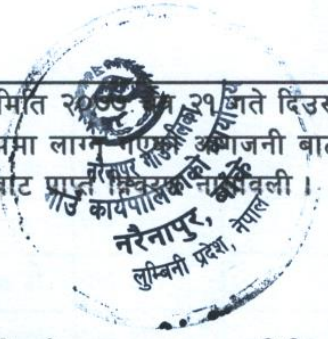 मिति २०७७ २१ गते दिउस
समा लाग्न आगजनी बाट
बाट प्राप्त विवरण नामावली ।
नरैनापुर गाउँपालिका
गाउँ कार्यपालिकाको कार्यालय
नरैनापुर, बाँके
लुम्बिनी प्रदेश, नेपाल